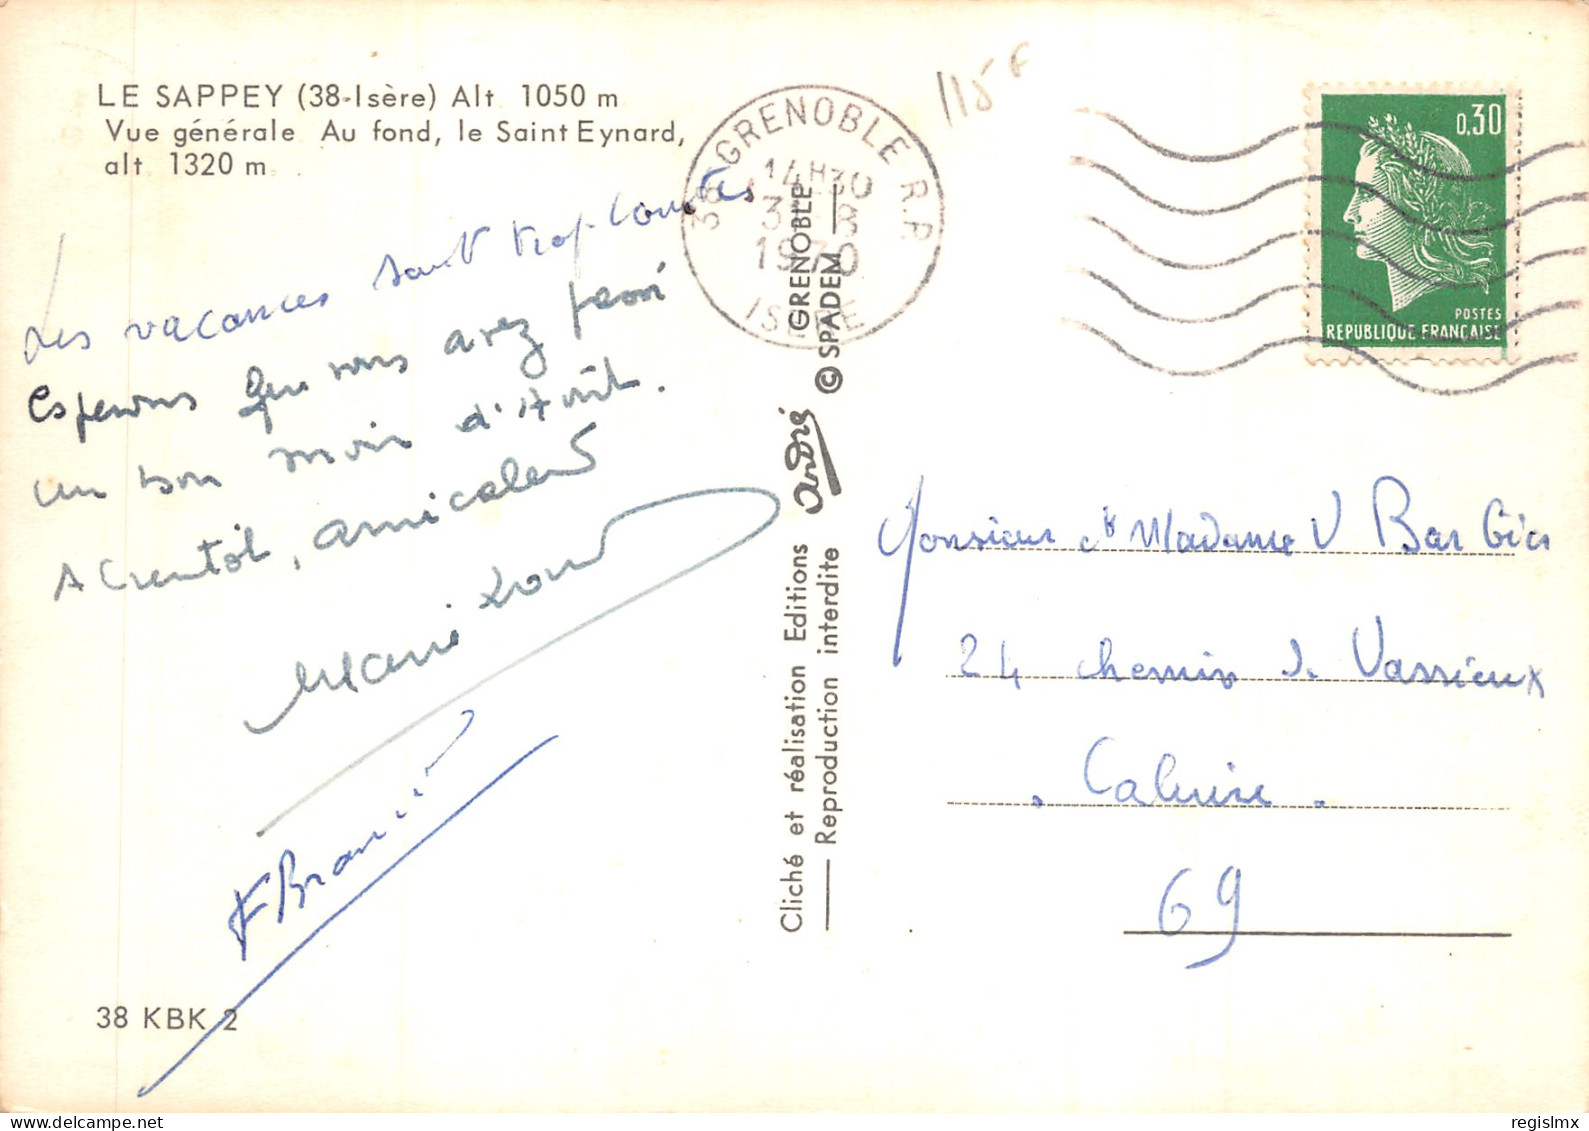 LE SAPPEY (38-Isère) Alt. 1050 m
Vue générale. Au fond, le Saint Eynard,
alt. 1320 m.
Les vacances sont trop courtes
Espérons que vous avez passé
un bon mois d'Août.
A bientôt, amicalement
Marie
F
38 KBK 2
Cliché et réalisation Editions andré GRENOBLE
Reproduction interdite © SPADEM
38 GRENOBLE R.P.
14H30
31-8
1970
ISERE
115 F
0,30
POSTES
REPUBLIQUE FRANCAISE
Monsieur et Madame V Barbier
24 chemin de Vassieux
Caluire.
69
regislmx